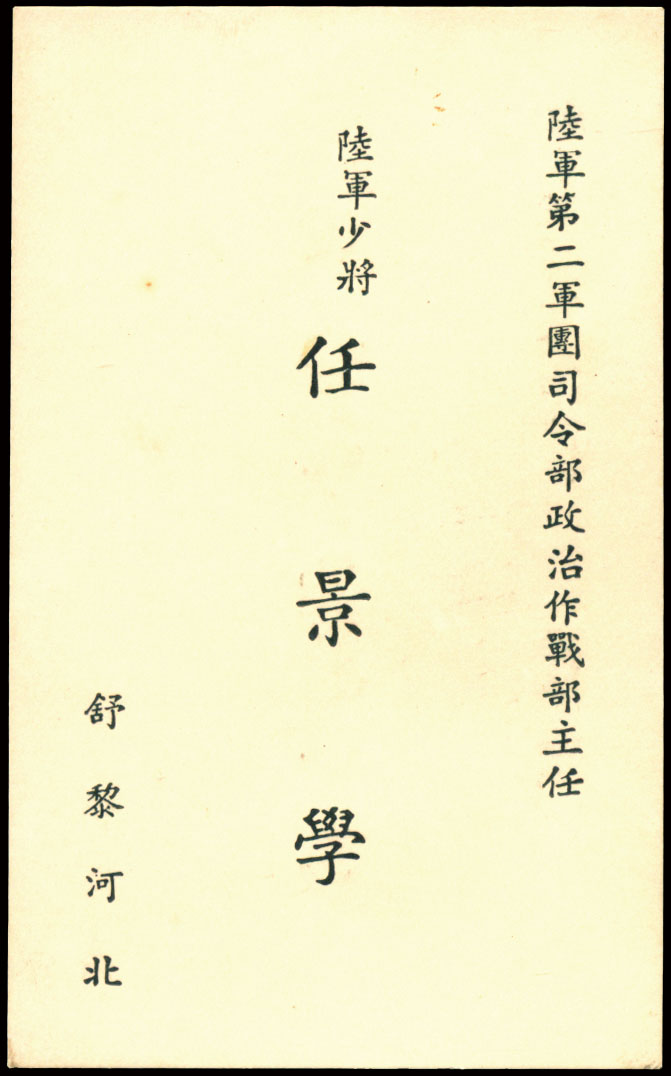 陸軍第二軍團司令部政治作戰部主任
陸軍少將
任景學
舒黎河北